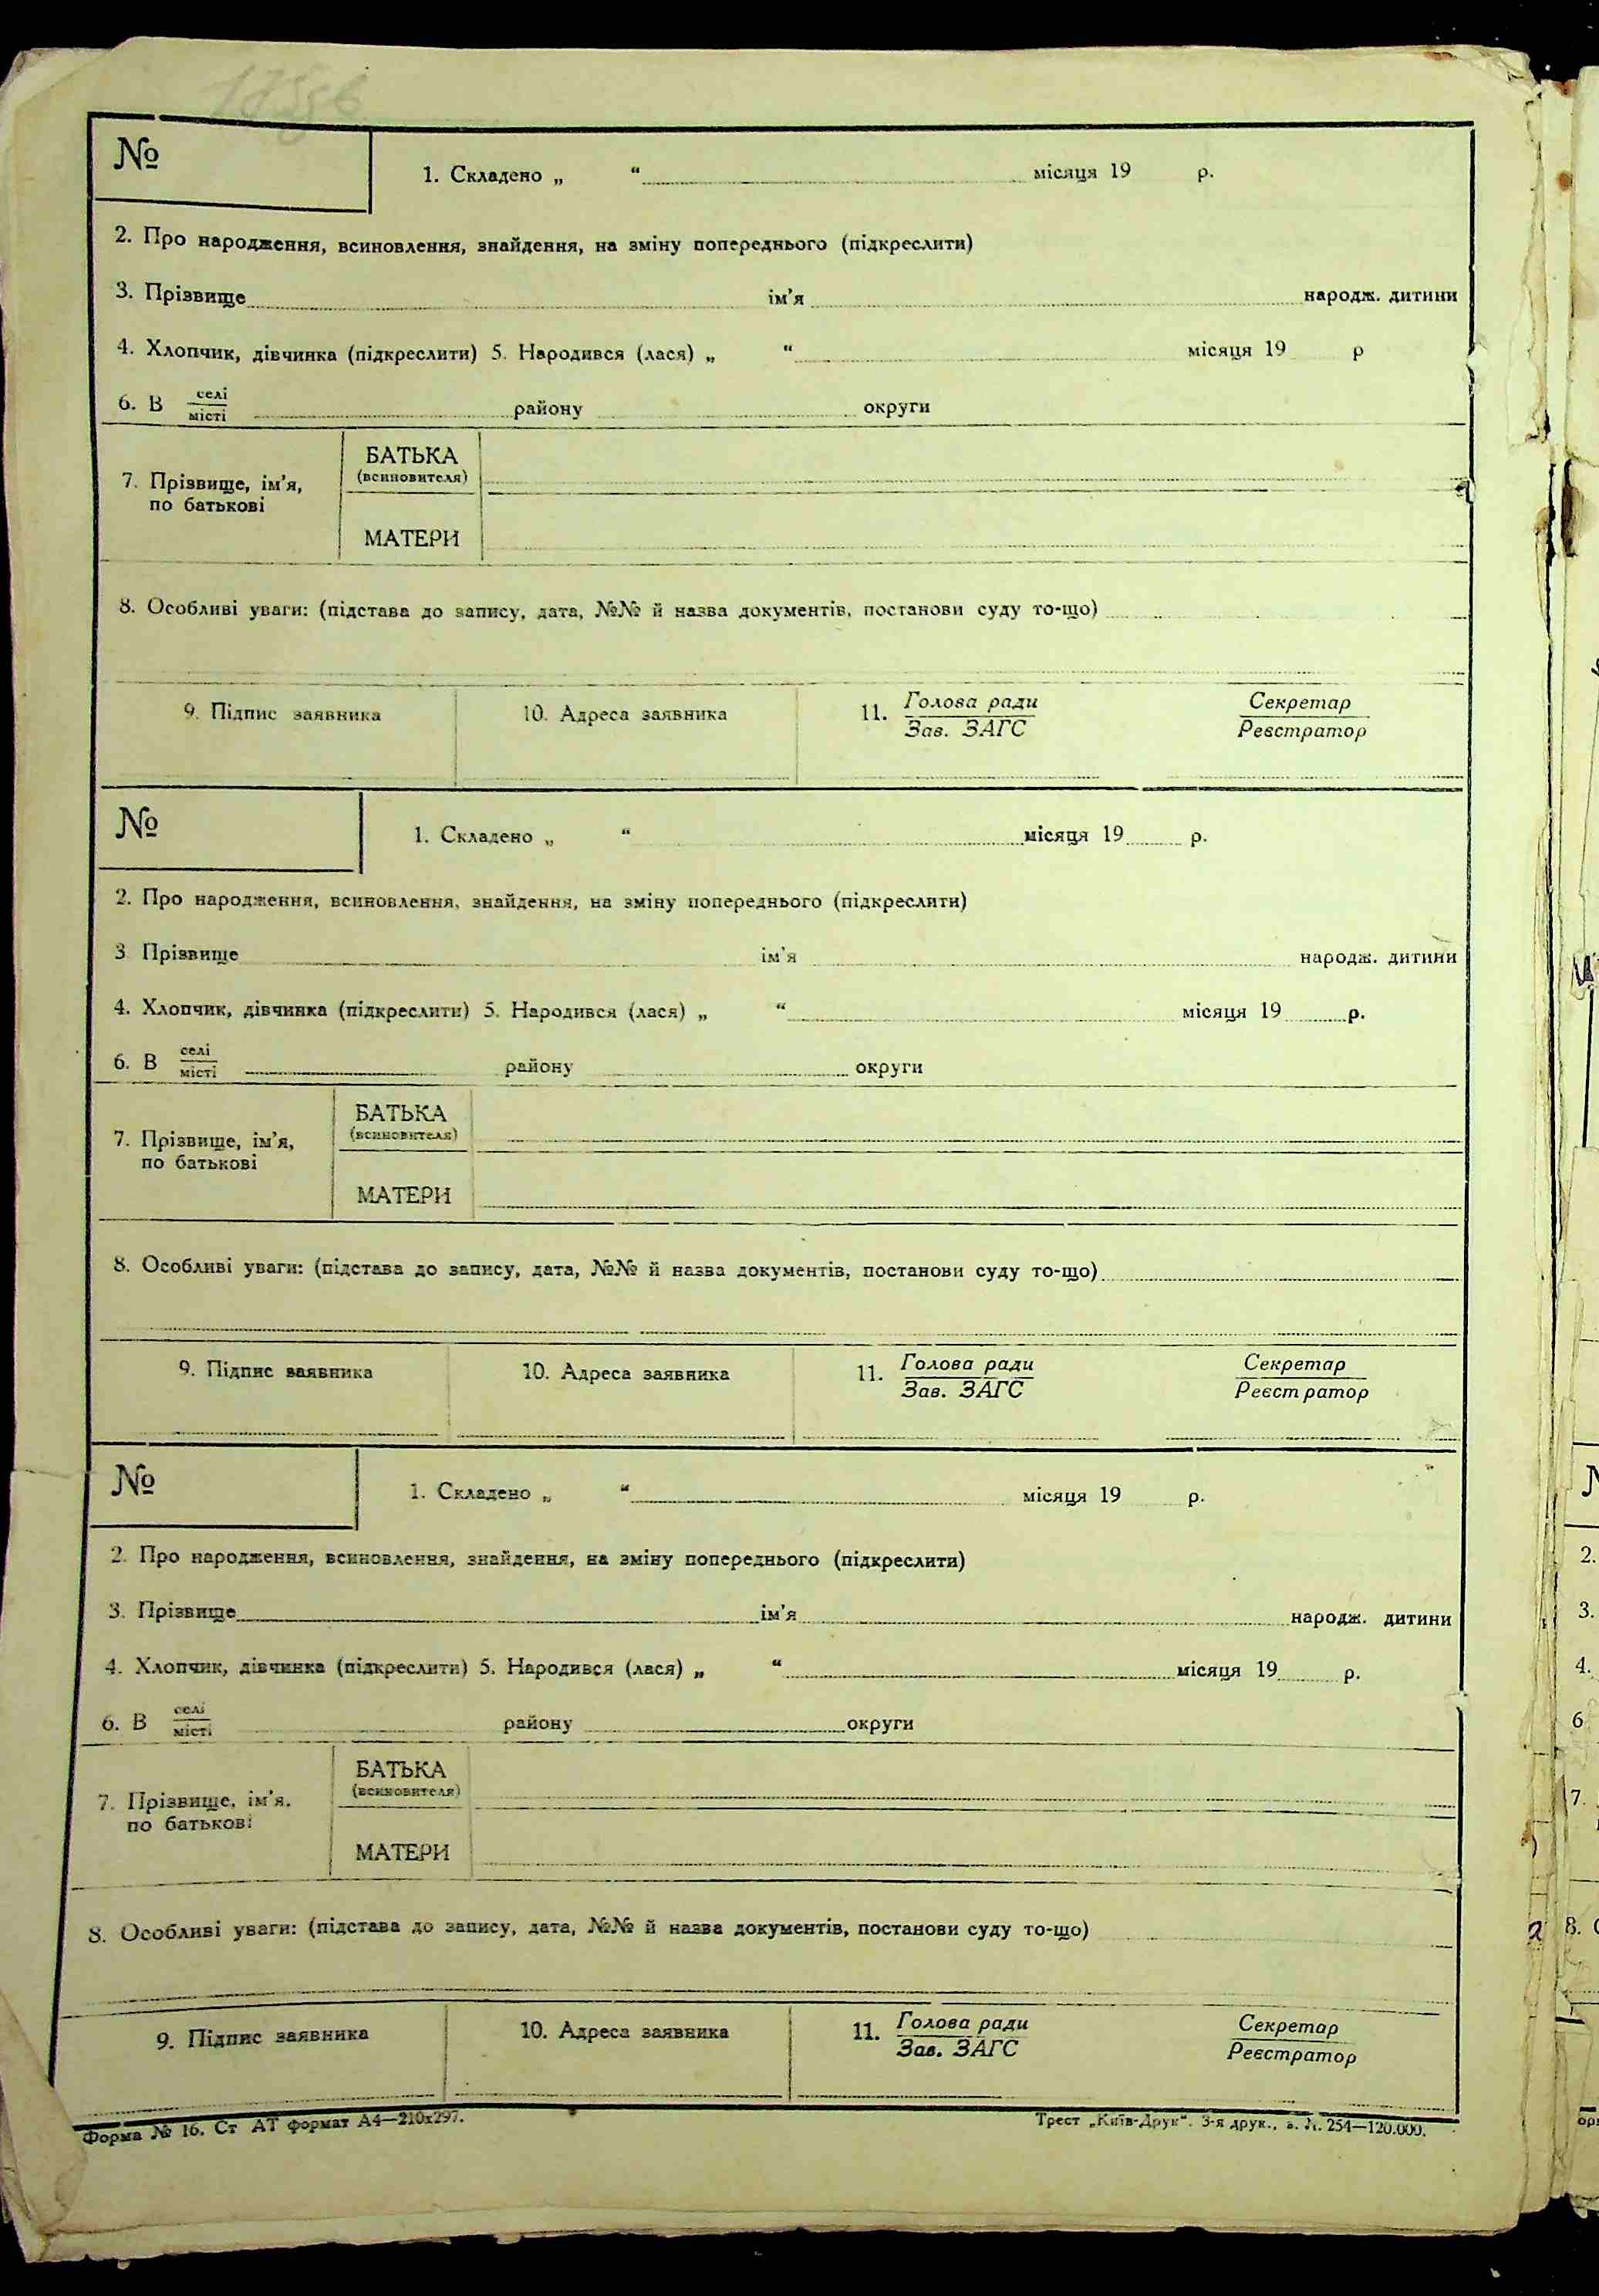 №
1. Складено „ “ місяця 19 р.
2. Про народження, всиновлення, знайдення, на зміну попереднього (підкреслити)
3. Прізвище ім’я народж. дитини
4. Хлопчик, дівчинка (підкреслити) 5. Народився (лася) „ “ місяця 19 р
6. В селі місті району округи
7. Прізвище, ім’я, по батькові
БАТЬКА
(всиновителя)
МАТЕРИ
8. Особливі уваги: (підстава до запису, дата, №№ й назва документів, постанови суду то-що)
9. Підпис заявника
10. Адреса заявника
11. Голова ради
Зав. ЗАГС
Секретар
Реєстратор
№
1. Складено „ “ місяця 19 р.
2. Про народження, всиновлення, знайдення, на зміну попереднього (підкреслити)
3 Прізвище ім’я народж. дитини
4. Хлопчик, дівчинка (підкреслити) 5. Народився (лася) „ “ місяця 19 р.
6. В селі місті району округи
7. Прізвище, ім’я, по батькові
БАТЬКА
(всиновителя)
МАТЕРИ
8. Особливі уваги: (підстава до запису, дата, №№ й назва документів, постанови суду то-що)
9. Підпис заявника
10. Адреса заявника
11. Голова ради
Зав. ЗАГС
Секретар
Реєстратор
№
1. Складено „ “ місяця 19 р.
2. Про народження, всиновлення, знайдення, на зміну попереднього (підкреслити)
3. Прізвище ім’я народж. дитини
4. Хлопчик, дівчинка (підкреслити) 5. Народився (лася) „ “ місяця 19 р.
6. В селі місті району округи
7. Прізвище, ім’я, по батькові
БАТЬКА
(всиновителя)
МАТЕРИ
8. Особливі уваги: (підстава до запису, дата, №№ й назва документів, постанови суду то-що)
9. Підпис заявника
10. Адреса заявника
11. Голова ради
Зав. ЗАГС
Секретар
Реєстратор
Форма № 16. Ст АТ формат А4—210х297.
Трест „Київ-Друк“. 3-я друк., 254—120.000.